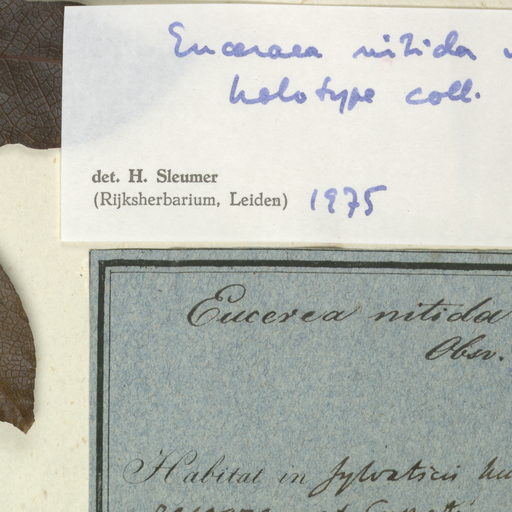 Euceraea nitida
holotype coll.
det. H. Sleumer
(Rijksherbarium, Leiden) 1975
Eucerea nitida
Obsv.
Habitat in sylvaticis